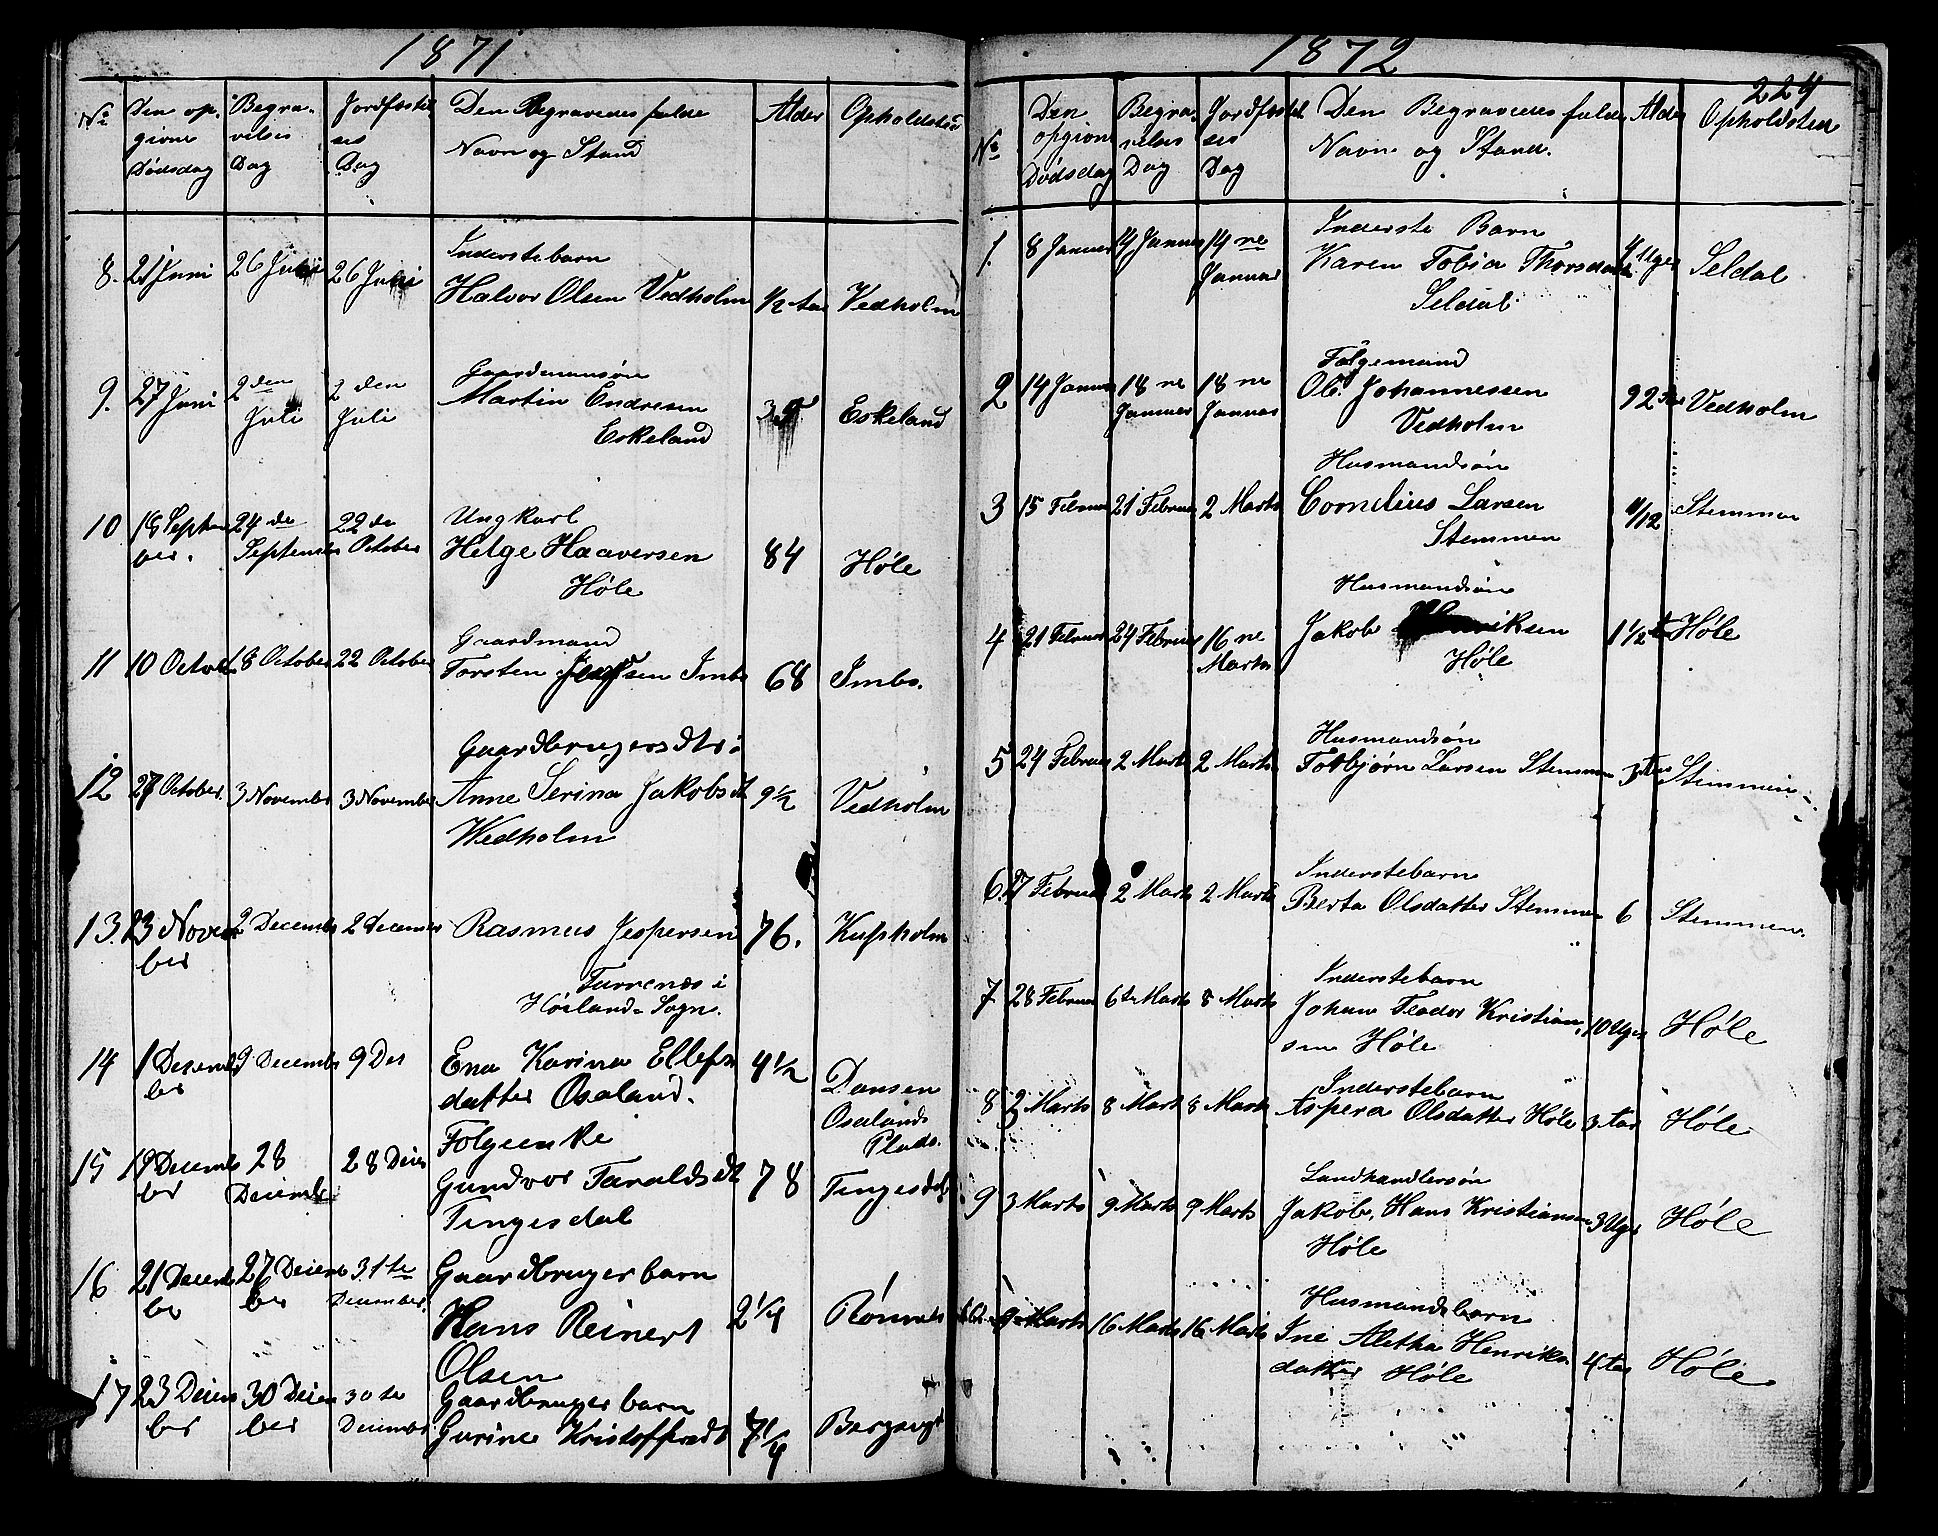 1871
No
Den op-
givne
Dødsdag
Begra-
velses
Dag
Jordfæstel
ses
Dag
Den Begravenes fulde
Navn og Stand
Alder
Opholdsted
8. 21 Juni 26 Juli 26 Juli
Inderstebarn
Halvor Olsen Vedholm 1/2 Vedholm
9. 27 Juni 2den Juli 2den Juli
Gaardmansøn
Martin Endresen
Eskeland
Eskeland
10 19 Septem
ber. 24de
September 22de
October
Ungkarl
Helge Haaversen
Høle
84 Høle
11 10 October 18 October 22 October
Gaardmand
Torsten Imbs 68 Imbs.
12 27 October. 3 November 3 November
Gaardbrugersdtr:
Anne Serina Jakobsdt 9 1/2 Vedholm
Wedholm
13. 23 Novem
ber 2 December 2 December
Rasmus Jespersen 76.
i
Høsland Sogn.
14 1 Desemb
ber 9 December 9 Des
Ena Karina Ellefs
datter Osaland.
4 1/2
Dansen
Osalands
Plads.
15 19 Decemb
ber 28
Desember 28 Deser
Følgeenke
Gundvor Taraldsdt 78 Tingesdal
Tingesdal
16 21 Decem
ber 27 Decem
ber 31te
December.
Gaardbrugerbarn
Hans Reinert
Olsen
2 1/4
17 23 Desem
ber 30 Desem
ber 30te
Desember
Gaardbrugerbarn
Gurine Kristoffersdt 7 1/4
1872
224
No
Den
opgivne
Dødsdag
Begra-
velses
Dag
Jordfæstel
ses
Dag
Den Begravenes fulde
Navn og Stand.
Alder
Opholdsted
1. 8 Januar 14 Januar 14ne
Januar
Inderste Barn
Karen Tobia Thorsdatter
Seldal
4 Uger Seldal
2 14 Januar 18ne
Januar 18ne
Januar
Følgemand
Ole Johannessen
Vedholm
92 Vedholm
3 15 Februar 21 Februar 2 Marts
Husmandsøn
Cornelius Larsen
Stemmen
11/12 Stemmen
4 21 Februar 24 Februar 16ne
Marts
Husmandsøn
Jakob Henriksen
Høle
1 1/2 Høle
5 24 Februar 2 Marts 2 Marts
Husmandsøn
Torbjørn Larsen Stemmen 3 Aar Stemmen
6. 27 Februar 2 Marts 2 Marts
Inderstebarn
Berta Olsdatter Stemmen 6 Stemmen.
7 28 Februar 6te Marts 8 Marts
Inderstebarn
Johan Teodor Kristian-
sen Høle
10 Uger Høle
8 2 Marts 8 Marts 8 Marts
Inderstebarn
Aspera Olsdatter Høle 3 Høle
9 3 Marts 9 Marts 9 Marts
Landhandlersøn
Jakob, Hans Kristiansen
Høle
3 Uger Høle
9 Marts 16 Marts 16 Marts
Husmandsbarn
Ine Aletha Henriks
datter Høle
4 Høle